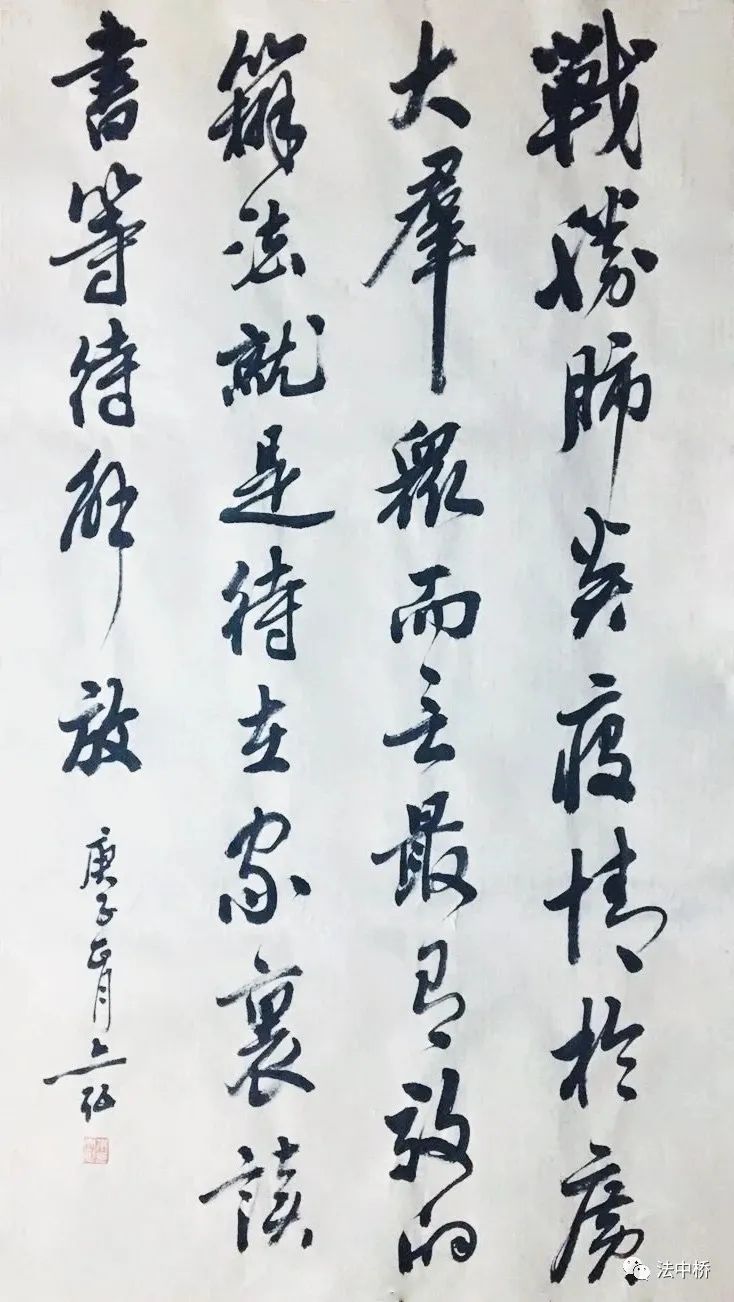 戰勝肺炎疫情於廣
大羣眾而言最有效的
辦法就是待在家裏讀
書等待解放
庚子正月
法中桥